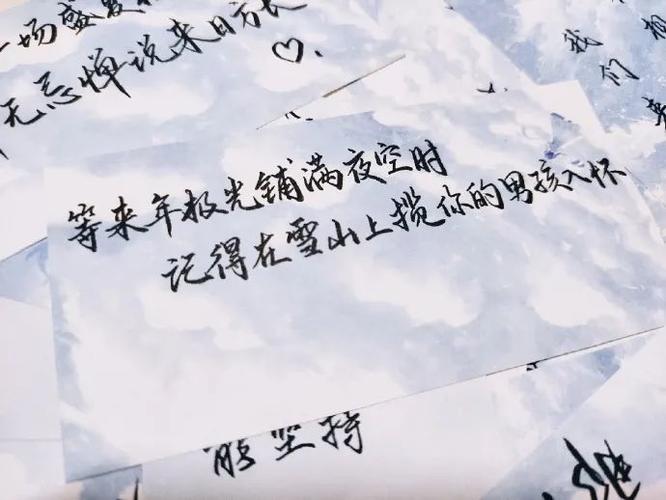 一场盛夏
无忌惮说来日方长
我们
等来年极光铺满夜空时
记得在雪山上揽你的男孩入怀
能坚持